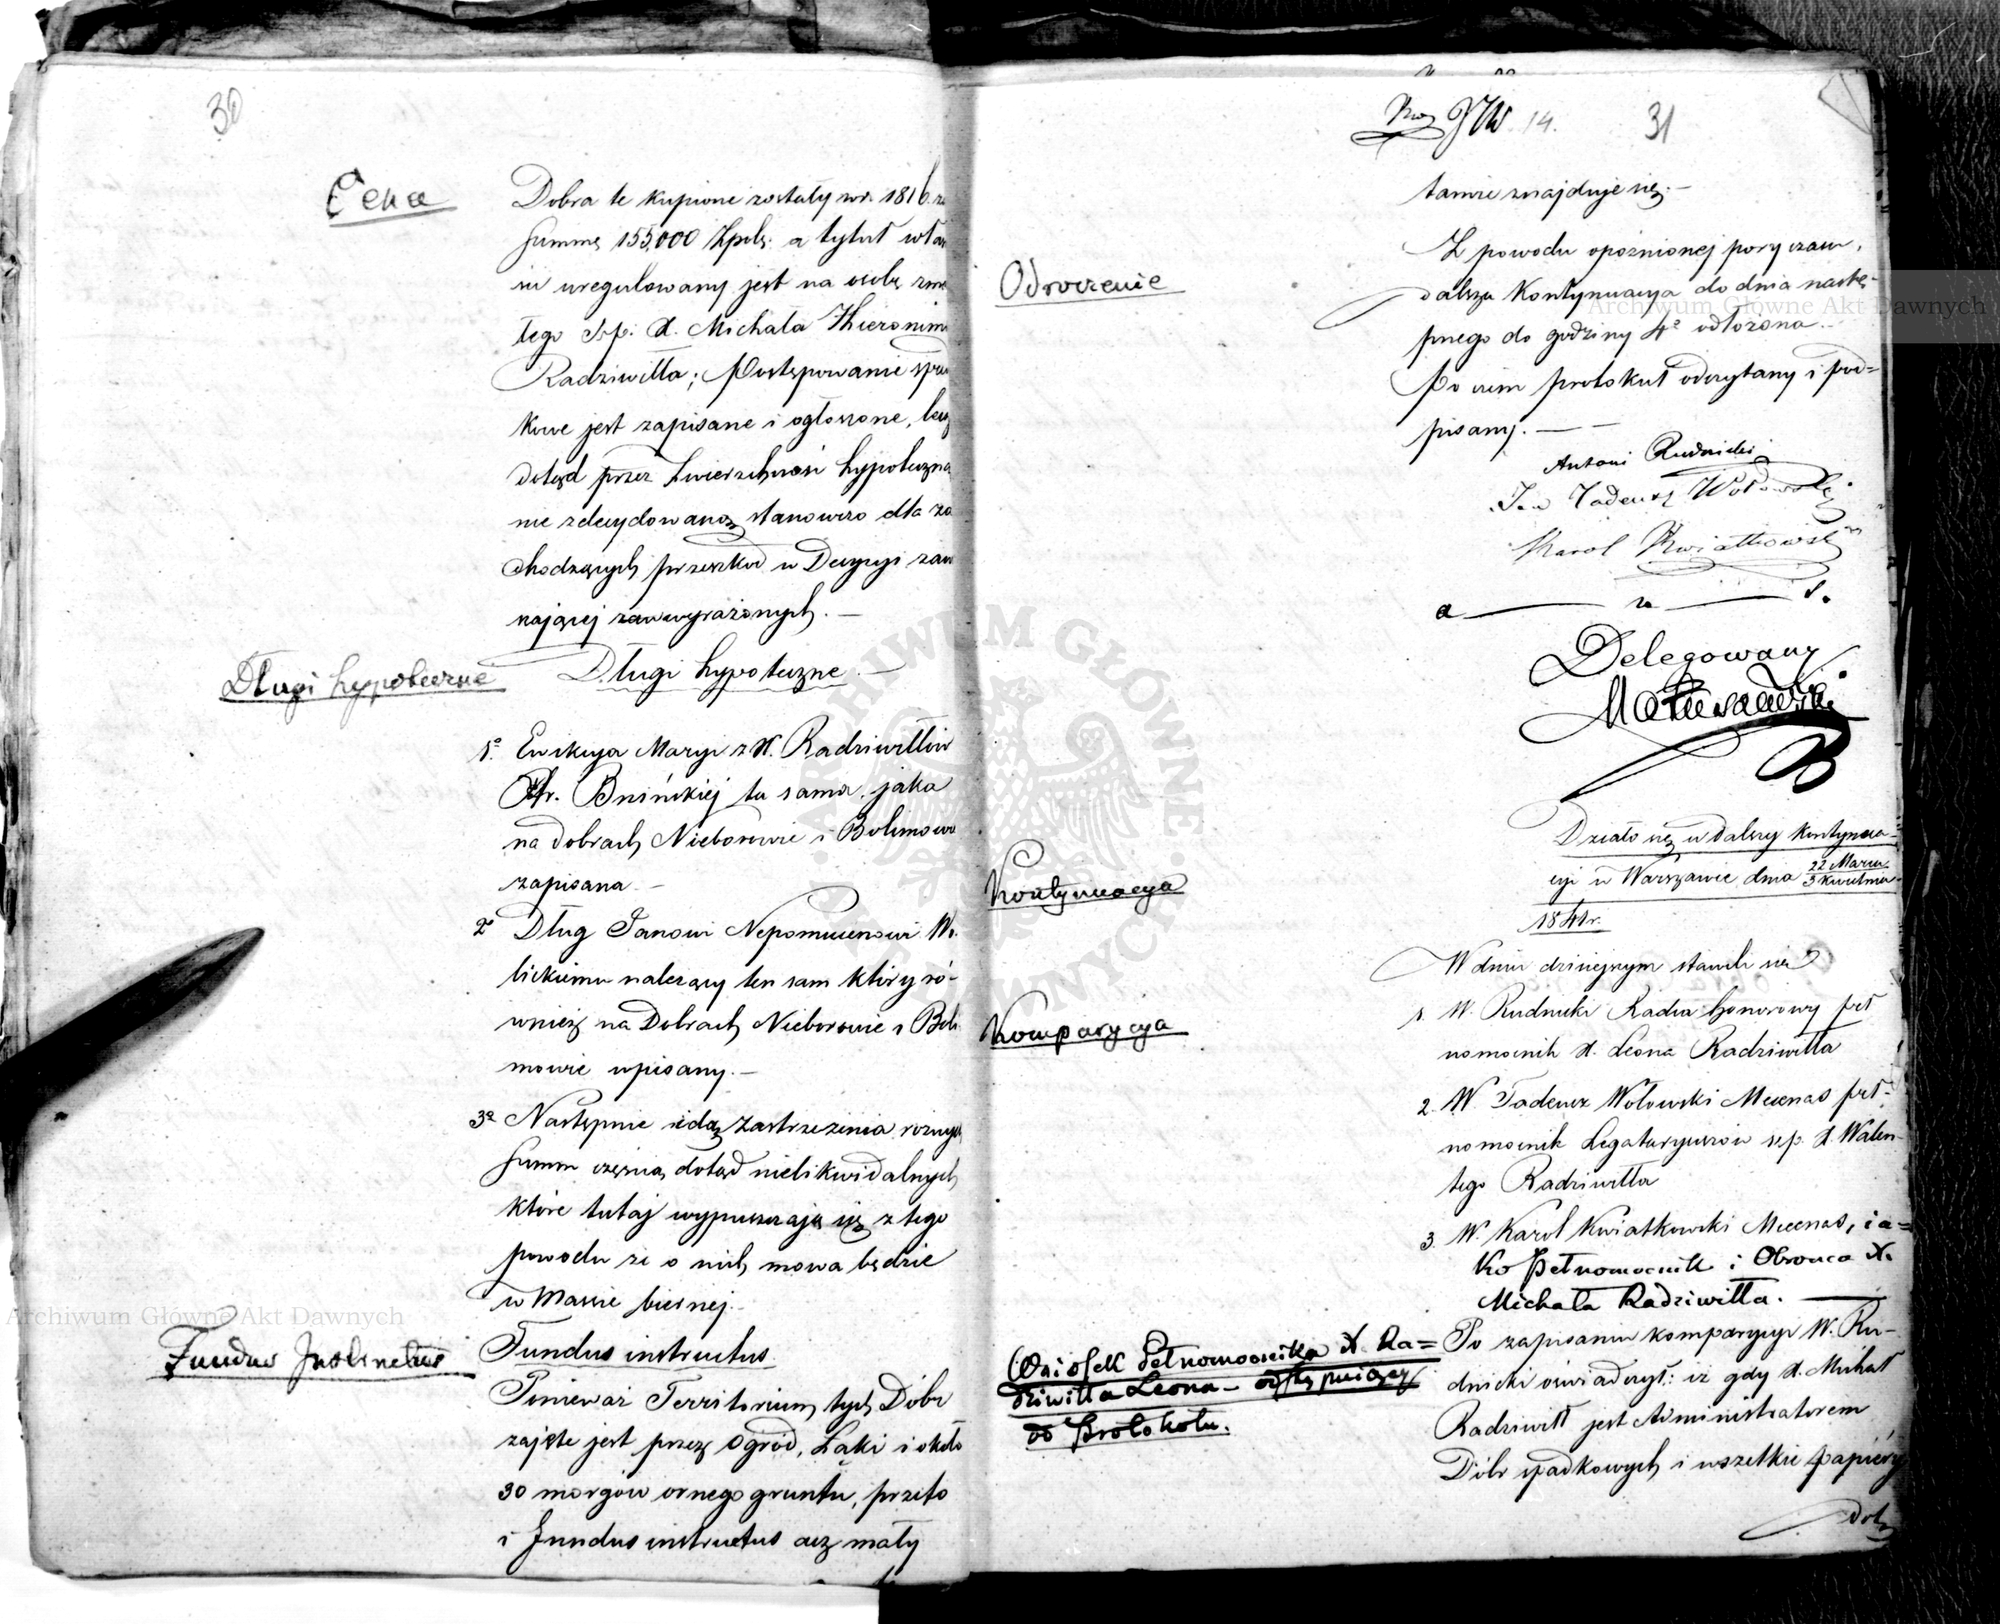 30
Cena
Dobra te kupione zostały w r. 1816. za
summę 155,000 Złpols: a tytuł włas
ni uregulowany jest na osobę zmar
łego ś.p. X. Michała Hieronima
Radziwiłła; Postępowanie spad
kowe jest zapisane i ogłoszone, lecz
dotąd przez Zwierzchność hypoteczną
nie zdecydowane stanowczo dla za
chodzących przeszkod w Decyzyi zaw
nającej wyrażonych. —
Długi hypoteczne
Długi hypoteczne. —
1o Ewikcya Maryi z X. Radziwiłłów
Hr. Bnińskiej ta sama, jaka
na dobrach Nieborowie i Bolimowie
zapisana. —
2o Dług Janowi Nepomucenowi Wo
lickiemu należący ten sam który ró-
wnież na Dobrach Nieborowie i Boli
mowie wpisany. —
3o Następnie idą zastrzeżenia rożnych
summ częścią dotąd nielikwidalnych
które tutaj wypuszczają się z tego
powodu że o nich mowa będzie
w Massie biernej. —
Fundus Instructus
Fundus instructus.
Ponieważ Territorium tych Dóbr
zajęte jest przez Ogród, Łąki i około
30 morgow ornego gruntu, przeto
i fundus instructus acz mały
14.
31
tamże znajduje się. —
Odroczenie
Z powodu opoźnionej pory czasu,
dalsza Kontynuacya do dnia nastę-
pnego do godziny 4e odłożona. —
Po czem protokuł odczytany i pod=
pisany. —
Antoni Rudnicki
Jan Tadeusz Wołowski
Karol Kwiatkowski
a — n — s.
Delegowany
Działo się w dalszej kontynua-
Kontynuacya
cyi w Warszawie dnia 22 Marca
3 Kwietnia
1841 r.
W dniu dzisiejszym stawili się
Komparycya
1. W. Rudnicki Radca honorowy peł
nomocnik X. Leona Radziwiłła
2. W. Tadeusz Wołowski Mecenas peł-
nomocnik Legataryuszów ś.p. X. Walen-
tego Radziwiłła
3. W. Karol Kwiatkowski Mecenas, ia=
ko Pełnomocnik i Obronca X.
Michała Radziwiłła. —
Wniosek Pełnomocnika X. Ra=
dziwiłła Leona – odstępujący
do Protokołu.
Po zapisaniu komparycyi W. Ru-
dnicki oświadczył: iż gdy X. Michał
Radziwiłł jest Administratorem
Dóbr spadkowych i wszelkie papiéry
Archiwum Główne Akt Dawnych
Archiwum Główne Akt Dawnych
ARCHIWUM GŁÓWNE AKT DAWNYCH